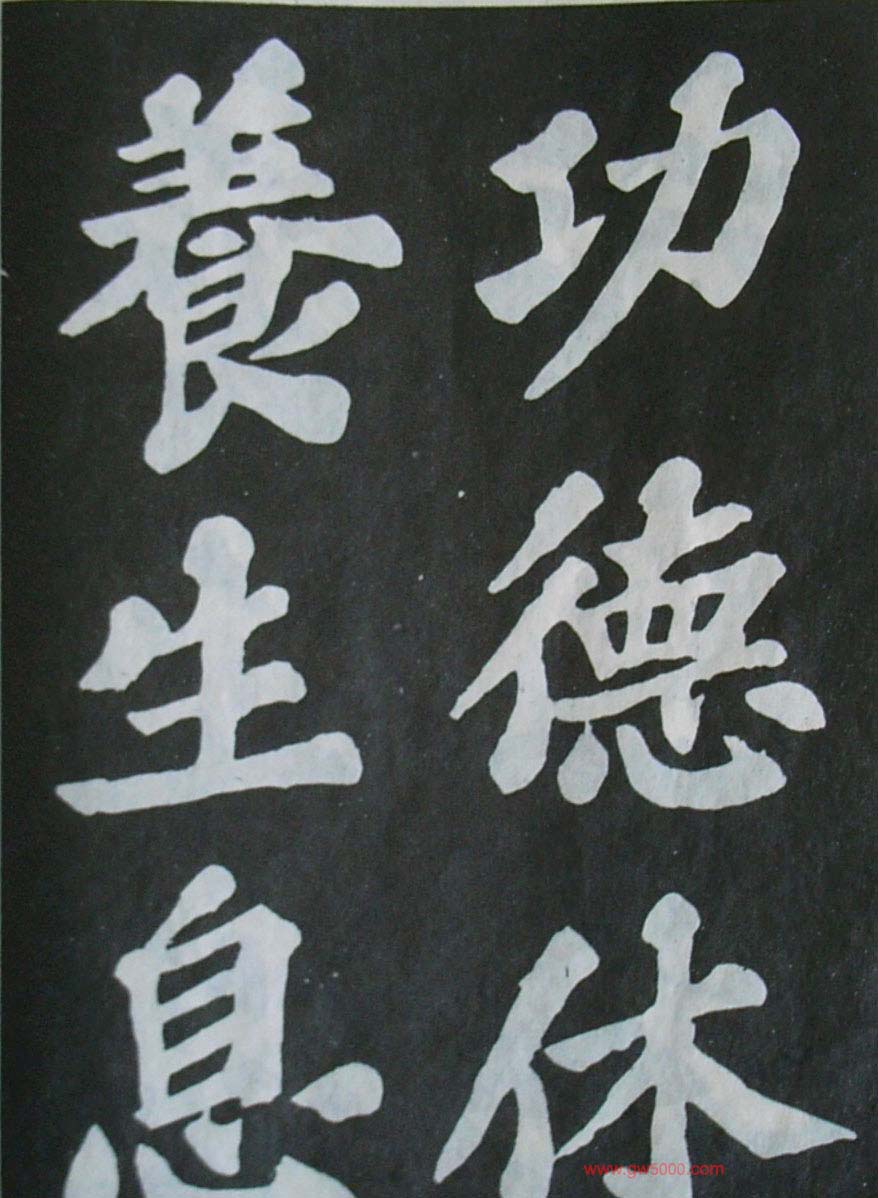 功德休
養生息
www.gw5000.com